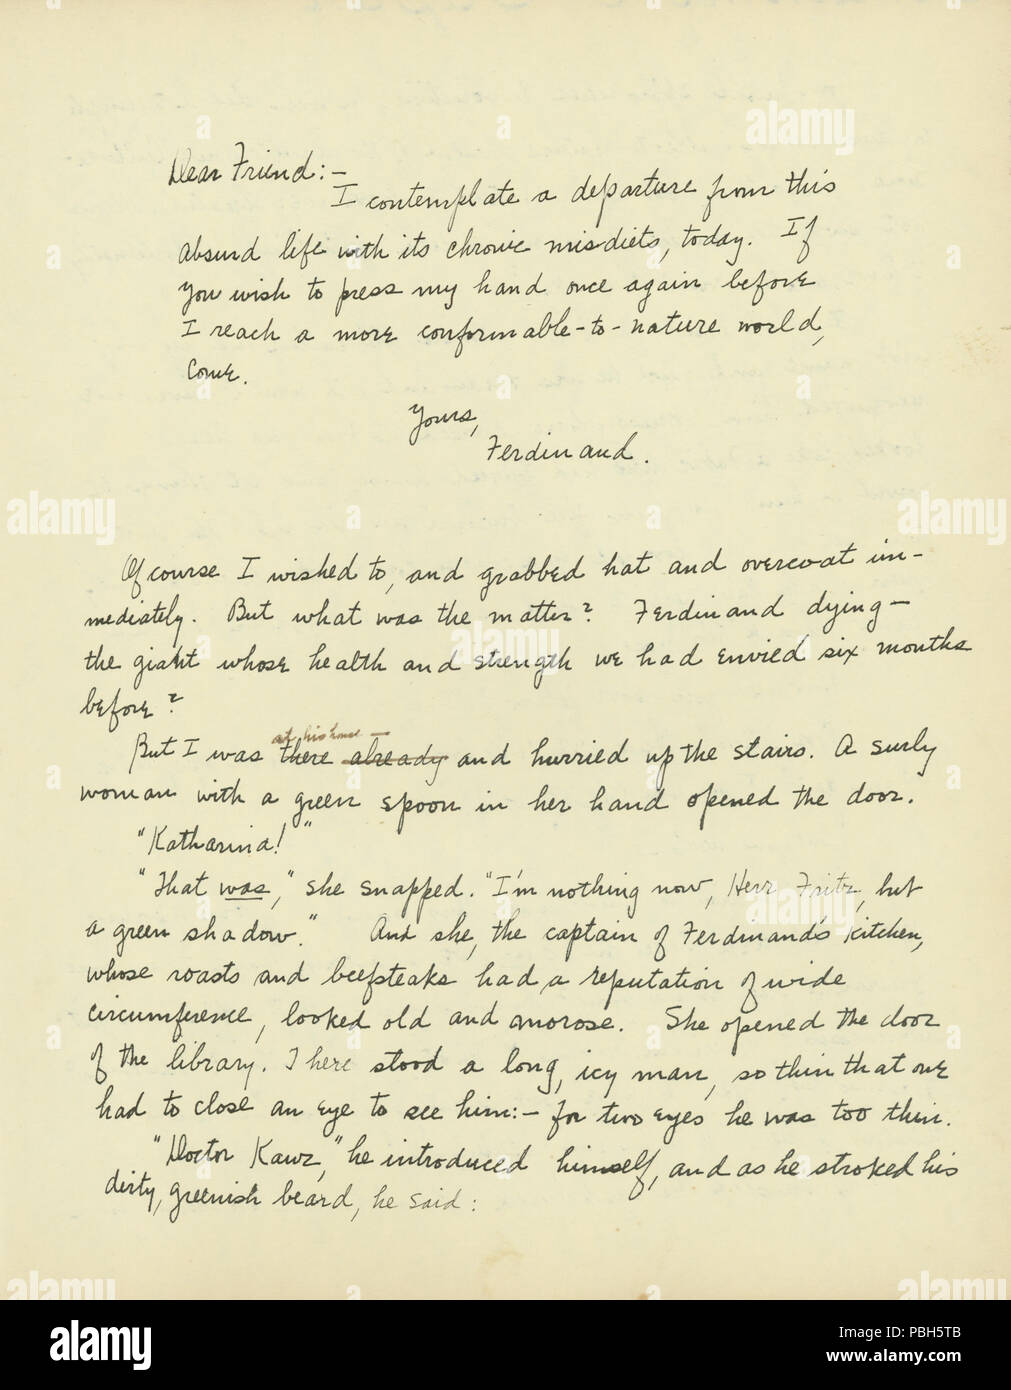 Dear Friend:—
I contemplate a departure from this
absurd life with its chronic misdiets, today. If
you wish to press my hand once again before
I reach a more conformable-to-nature world,
come.
Yours,
Ferdinand.
Of course I wished to, and grabbed hat and overcoat im-
mediately. But what was the matter? Ferdinand dying—
the giant whose health and strength we had envied six months
before?
at his house —
But I was there already and hurried up the stairs. A surly
woman with a green spoon in her hand opened the door.
"Katharina!"
"That was," she snapped. "I'm nothing now, Herr Fritz, but
a green shadow." And she, the captain of Ferdinand's kitchen,
whose roasts and beefsteaks had a reputation of wide
circumference, looked old and morose. She opened the door
of the library. There stood a long, icy man, so thin that one
had to close an eye to see him:— for two eyes he was too thin.
"Doctor Kawz," he introduced himself, and as he stroked his
dirty, greenish beard, he said:
alamy
PBH5TB
www.alamy.com